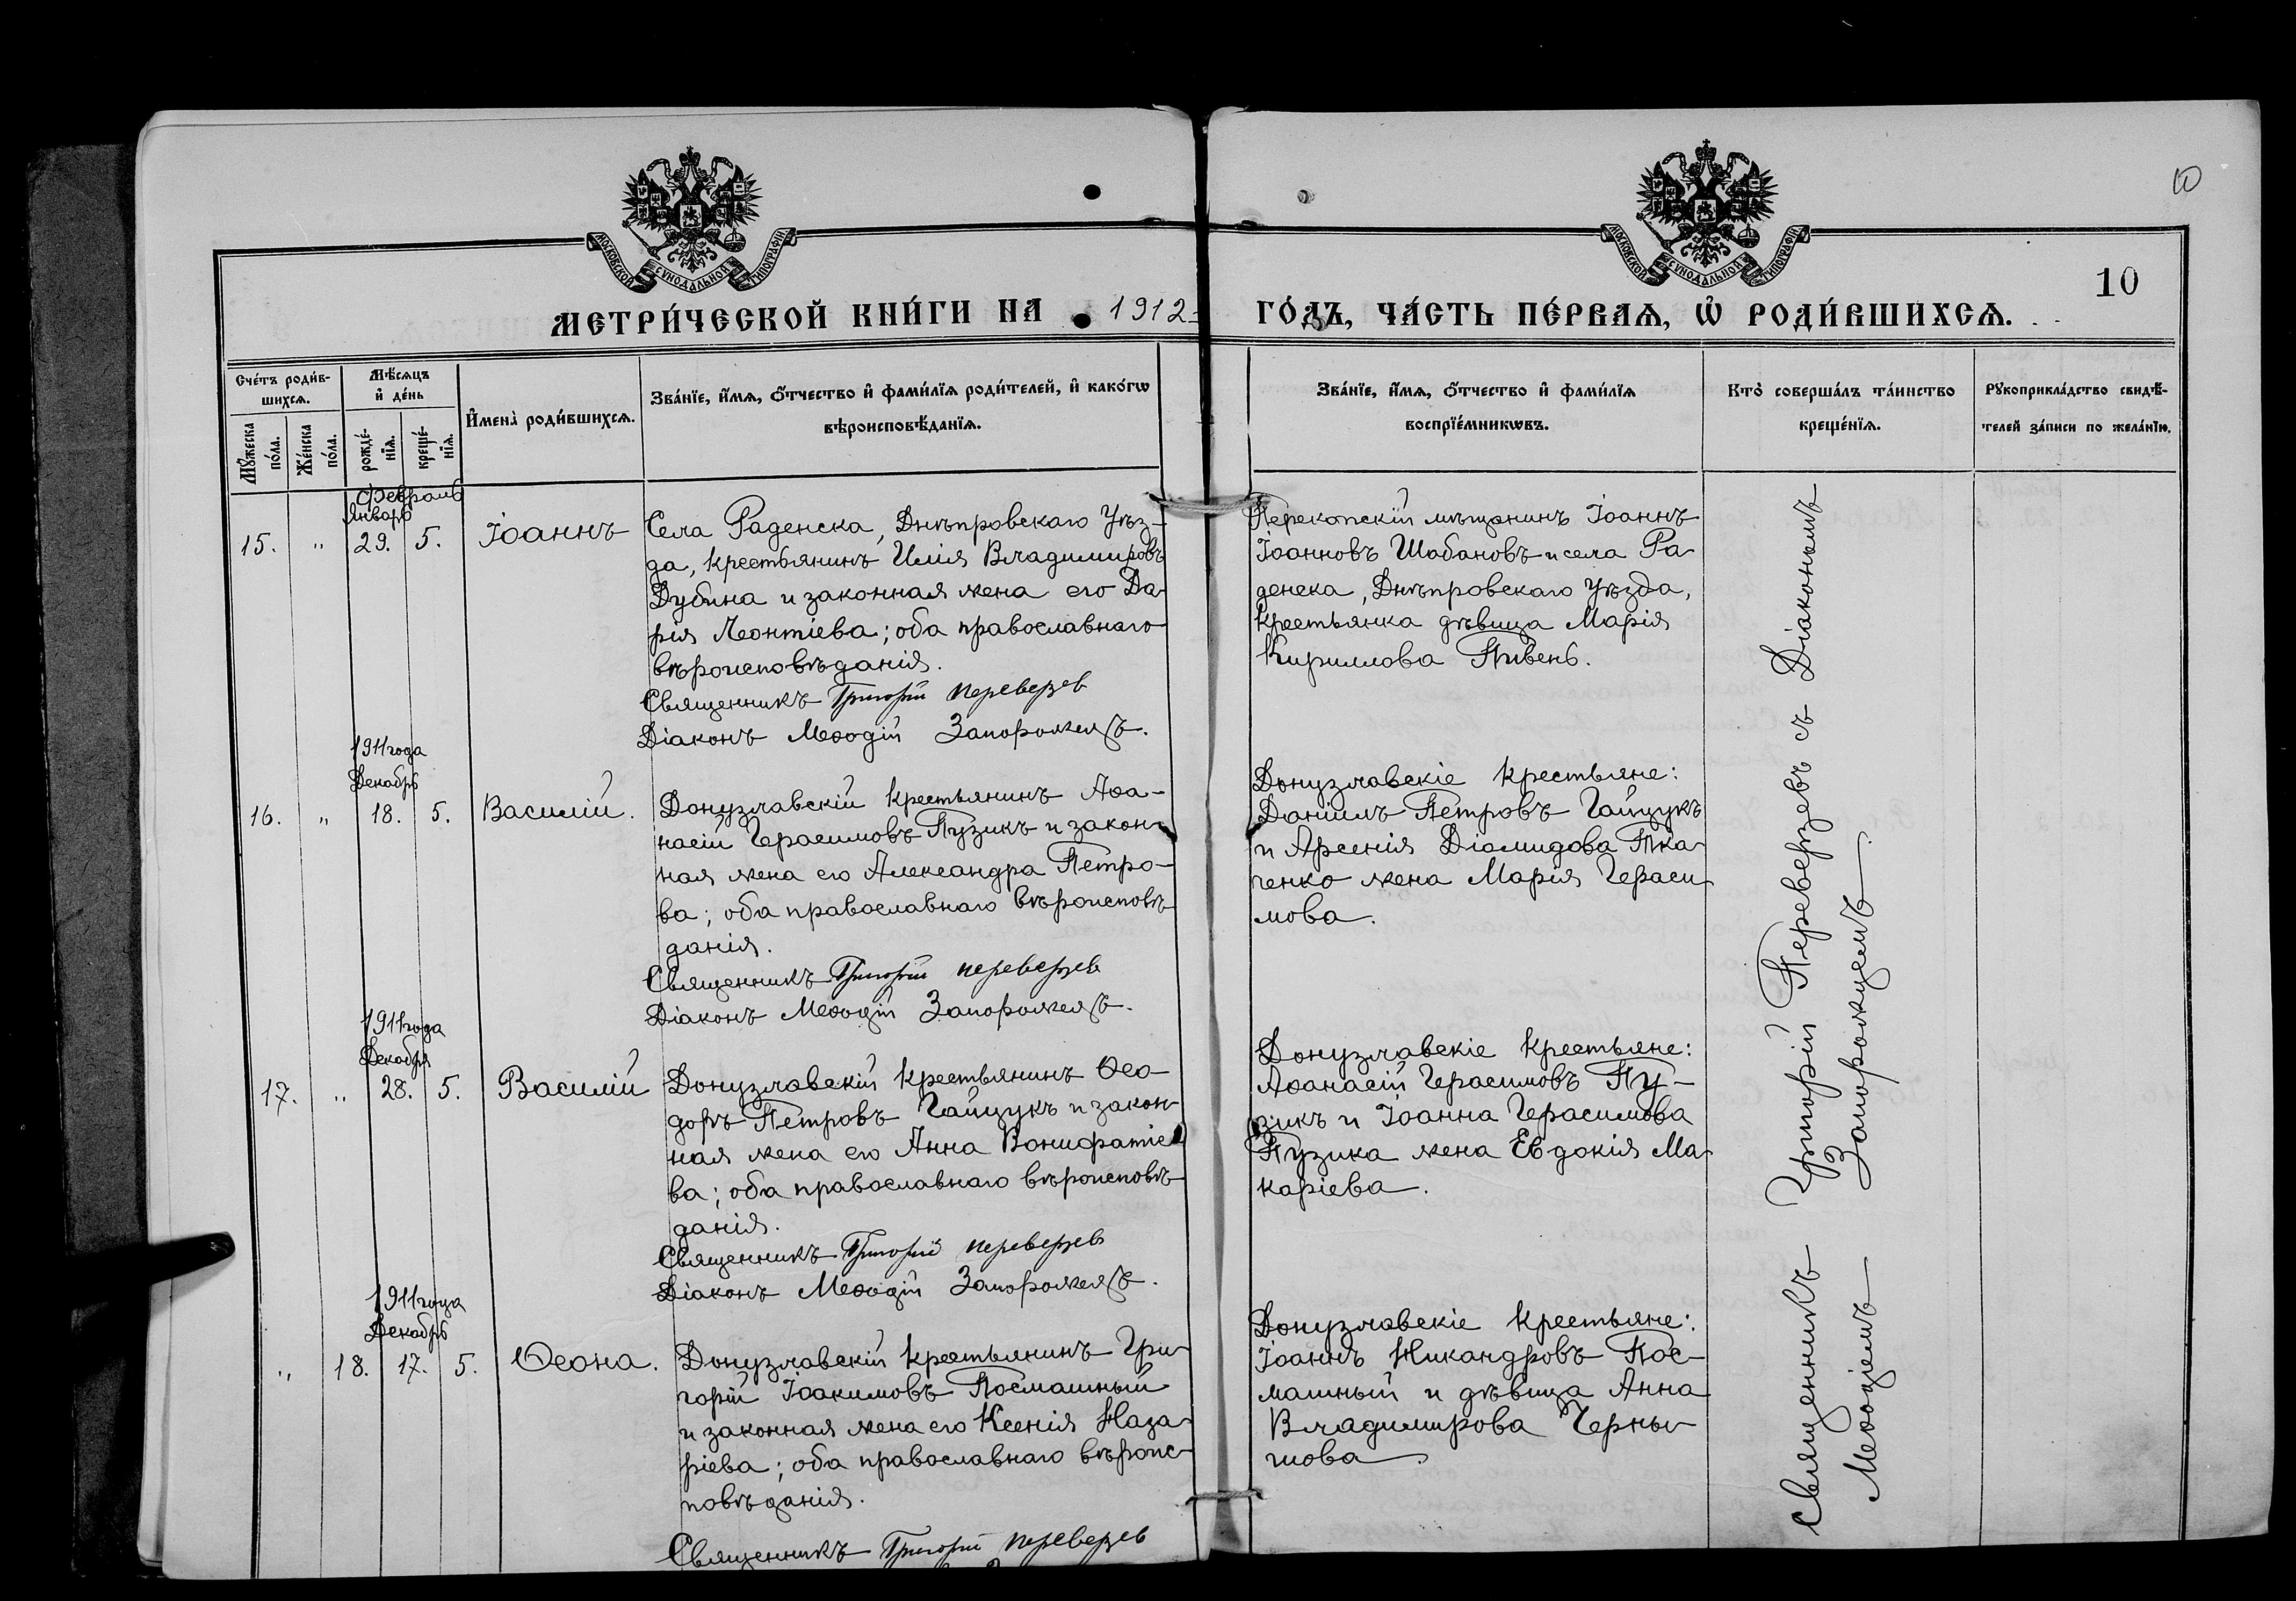 10
МОСКОВСКОЙ СѴНОДАЛЬНОЙ ТИПОГРАФІИ
МОСКОВСКОЙ СѴНОДАЛЬНОЙ ТИПОГРАФІИ
10
МЕТРИ́ЧЕСКОЙ КНИ́ГИ НА 1912 ГО́ДЪ, ЧА́СТЬ ПЕ́РВАѦ, Ѡ҆ РОДИ́ВШИХСѦ.
Сче́тъ роди́в-
шихсѧ.
Мꙋ́жеска
по́ла.
Же́нска
по́ла.
Мѣ́сѧцъ
и҆ де́нь
рожде́-
нїѧ.
креще́-
нїѧ.
И҆мена̀ роди́вшихсѧ.
Зва́нїе, и҆́мѧ, ѻ҆́тчество и҆ фами́лїѧ роди́телей, и҆ како́гѡ
вѣроисповѣ́данїѧ.
Зва́нїе, и҆́мѧ, ѻ҆́тчество и҆ фами́лїѧ
воспрїе́мникѡвъ.
Кто̀ соверша́лъ та́инство
креще́нїѧ.
Рꙋкоприкла́дство свидѣ́-
телей за́писи по жела́нїю.
Февраль
Январь
15. " 29. 5. Іоаннъ
Села Раденска, Днѣпровскаго Уѣз-
да, крестьянинъ Илія Владимировъ
Дубина и законная жена его Да-
рія Леонтіева; оба православнаго
вѣроисповѣданія.
Священникъ Григорій Переверзев
Діаконъ Меѳодій Запорожецъ.
Перекопскій мѣщанинъ Іоаннъ
Іоанновъ Шабановъ и села Ра-
денска, Днѣпровскаго Уѣзда,
крестьянка дѣвица Марія
Кириллова Пивень.
1911 года
Декабрь
16. " 18. 5. Василій.
Донузлавскій крестьянинъ Аѳа-
насій Герасимовъ Пузикъ и закон-
ная жена его Александра Петро-
ва; оба православнаго вѣроисповѣ-
данія.
Священникъ Григорій Переверзев
Діаконъ Меѳодій Запорожецъ.
Донузлавскіе крестьяне:
Даніилъ Петровъ Гайцукъ
и Арсенія Діомидова Тка-
ченко жена Марія Гераси-
мова.
1911 года
Декабря
17. " 28. 5. Василій
Донузлавскій крестьянинъ Ѳео-
доръ Петровъ Гайцукъ и закон-
ная жена его Анна Вонифатіе-
ва; оба православнаго вѣроисповѣ-
данія.
Священникъ Григорій Переверзев
Діаконъ Меѳодій Запорожецъ.
Донузлавскіе крестьяне:
Аѳанасій Герасимовъ Пу-
зикъ и Іоанна Герасимова
Пузика жена Евдокія Ма-
каріева.
1911 года
Декабрь
" 18. 17. 5. Ѳеона.
Донузлавскій крестьянинъ Гри-
горій Іоакимовъ Посмашный
и законная жена его Ксенія Наза-
ріева; оба православнаго вѣроис-
повѣданія.
Священникъ Григорій Переверзев
Донузлавскіе крестьяне:
Іоаннъ Никандровъ Пос-
машный и дѣвица Анна
Владимирова Черны-
шова.
Священникъ Григорій Переверзевъ съ Діакономъ
Меѳодіемъ Запорожцемъ.